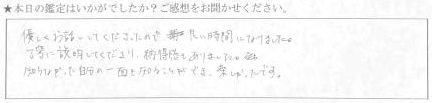 ★本日の鑑定はいかがでしたか?ご感想をお聞かせください。
優しくお話してくださったので 楽しい時間になりました。
丁寧に説明してくださり、納得感もありました。
知らなかった自分の一面を知ることができ、楽しかったです。